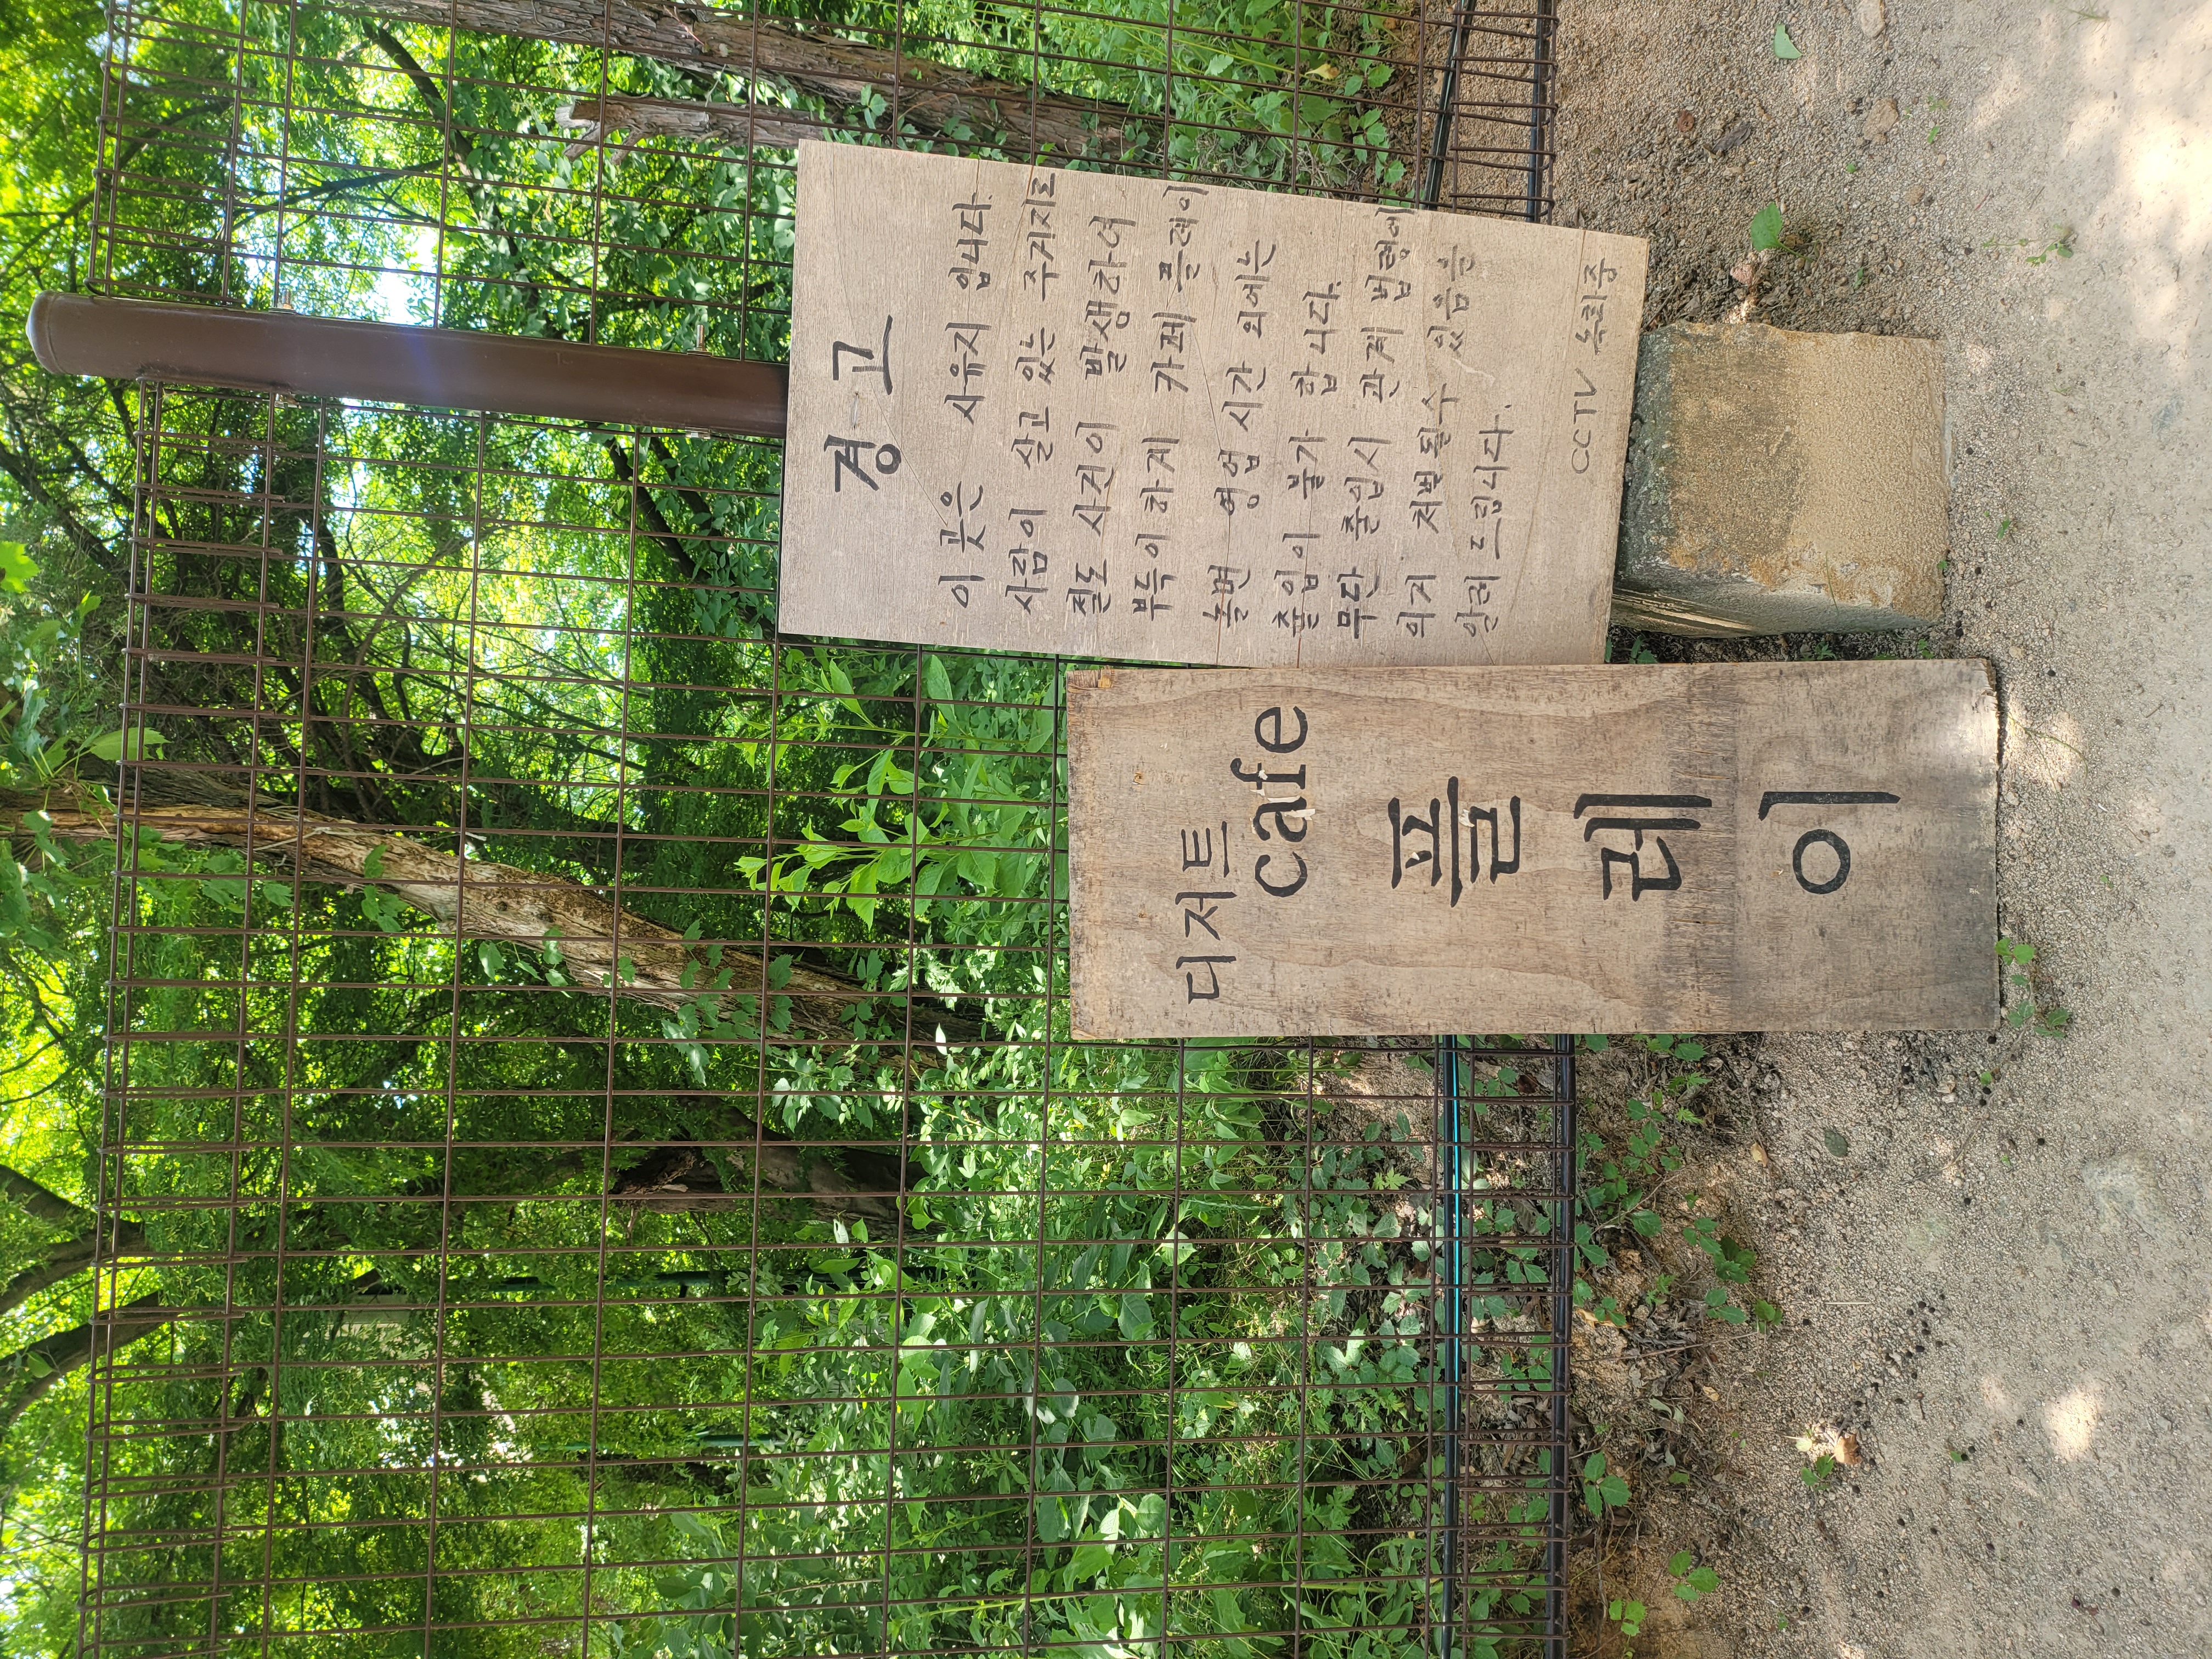 디저트
cafe
플
레
이
경고
이 곳은 사유지 입니다.
사람이 살고 있는 주거지로
절도 사건이 발생하여
부득이하게 카페 플레이
놀면 영업 시간 외에는
출입이 불가 합니다.
무단 출입시 관계 법령에
의거 처벌 될수 있음을
알려 드립니다.
CCTV 녹화중